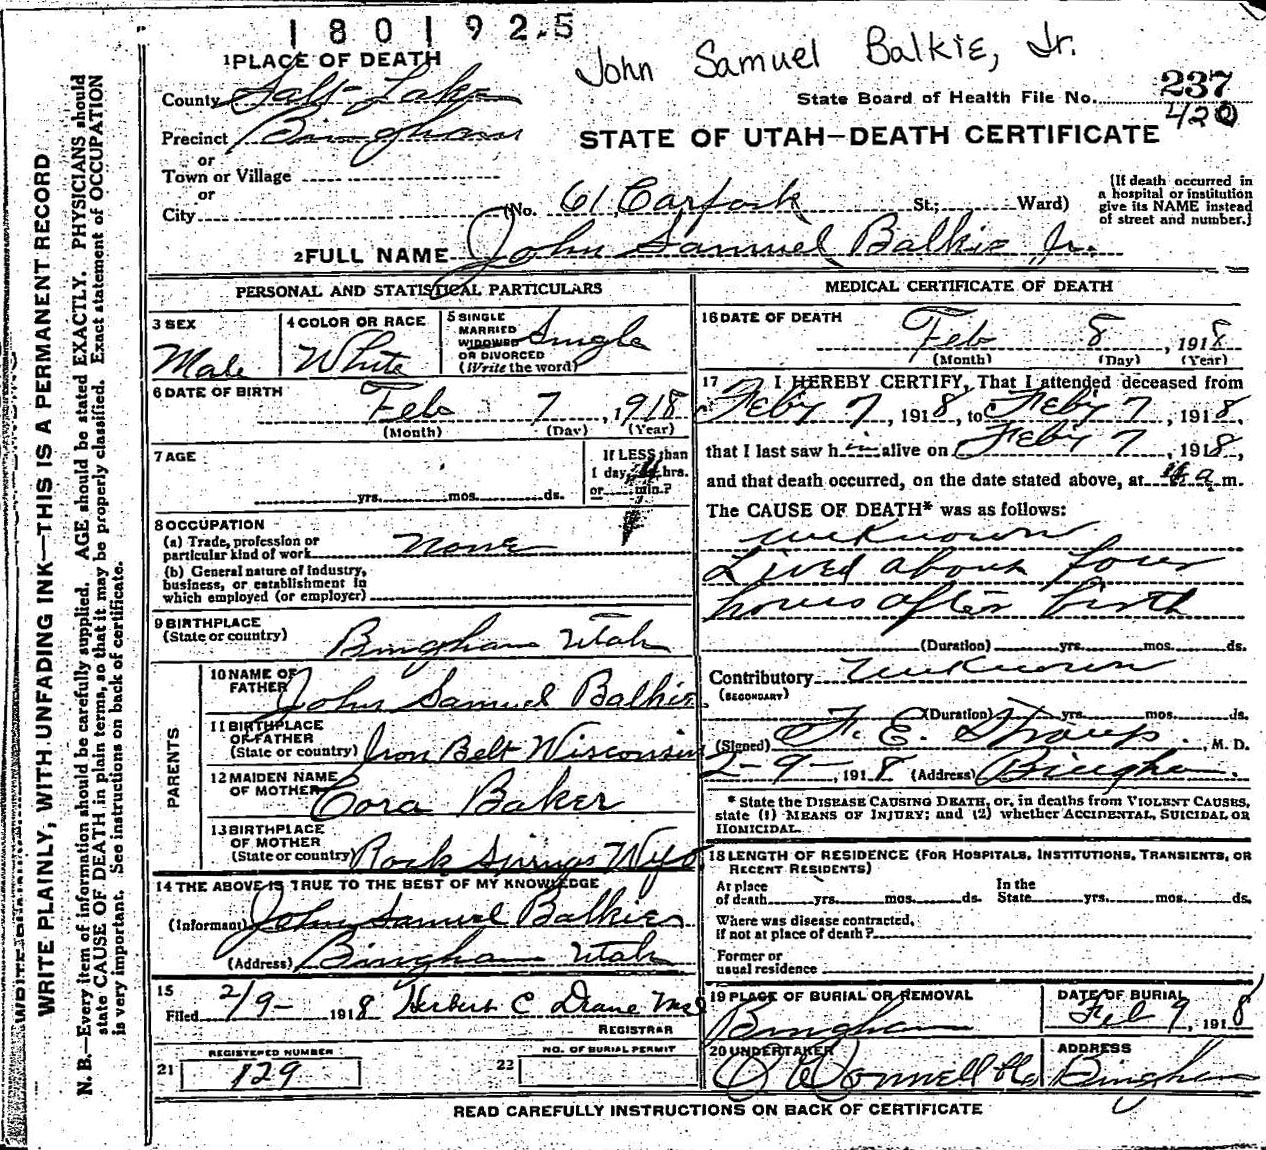 1801925
John Samuel Balkie, Jr.
1 PLACE OF DEATH
County Salt Lake
State Board of Health File No. 237
420
Precinct Bingham
STATE OF UTAH—DEATH CERTIFICATE
or
Town or Village
or
City (No. 61 Carfork St.; Ward)
(If death occurred in
a hospital or institution
give its NAME instead
of street and number.)
2 FULL NAME John Samuel Balkie Jr.
PERSONAL AND STATISTICAL PARTICULARS
3 SEX
Male
4 COLOR OR RACE
White
5 SINGLE
MARRIED
WIDOWED
OR DIVORCED
(Write the word)
Single
6 DATE OF BIRTH
Feb 7, 1918
(Month) (Day) (Year)
7 AGE
yrs. mos. ds.
If LESS than
1 day, hrs.
or min.?
8 OCCUPATION
(a) Trade, profession or
particular kind of work None
(b) General nature of industry,
business, or establishment in
which employed (or employer)
9 BIRTHPLACE
(State or country) Bingham Utah
PARENTS
10 NAME OF
FATHER John Samuel Balkie
11 BIRTHPLACE
OF FATHER
(State or country) Iron Belt Wisconsin
12 MAIDEN NAME
OF MOTHER Cora Baker
13 BIRTHPLACE
OF MOTHER
(State or country) Rock Springs Wyo
14 THE ABOVE IS TRUE TO THE BEST OF MY KNOWLEDGE
(Informant) John Samuel Balkie
(Address) Bingham Utah
15
Filed 2/9- 1918 Herbert C
REGISTRAR
REGISTERED NUMBER
21 129
NO. OF BURIAL PERMIT
22
MEDICAL CERTIFICATE OF DEATH
16 DATE OF DEATH
Feb 8, 1918
(Month) (Day) (Year)
17 I HEREBY CERTIFY, That I attended deceased from
Feby 7, 1918, to Feby 7, 1918,
that I last saw him alive on Feby 7, 1918,
and that death occurred, on the date stated above, at a m.
The CAUSE OF DEATH* was as follows:
unknown
Lived about four
hours after birth
(Duration) yrs. mos. ds.
Contributory unknown
(SECONDARY)
(Duration) yrs. mos. ds.
(Signed) F. E. Straup. M. D.
2-9-, 1918 (Address) Bingham.
* State the DISEASE CAUSING DEATH, or, in deaths from VIOLENT CAUSES,
state (1) MEANS OF INJURY; and (2) whether ACCIDENTAL, SUICIDAL OR
HOMICIDAL.
18 LENGTH OF RESIDENCE (FOR HOSPITALS, INSTITUTIONS, TRANSIENTS, OR
RECENT RESIDENTS)
At place
of death yrs. mos. ds.
In the
State yrs. mos. ds.
Where was disease contracted,
if not at place of death?
Former or
usual residence
19 PLACE OF BURIAL OR REMOVAL
Bingham
DATE OF BURIAL
Feb 9, 1918
20 UNDERTAKER
O'Donnell & Co
ADDRESS
Bingham
READ CAREFULLY INSTRUCTIONS ON BACK OF CERTIFICATE
WRITE PLAINLY, WITH UNFADING INK—THIS IS A PERMANENT RECORD
N. B.—Every item of information should be carefully supplied. AGE should be stated EXACTLY. PHYSICIANS should
state CAUSE OF DEATH in plain terms, so that it may be properly classified. Exact statement of OCCUPATION
is very important. See instructions on back of certificate.